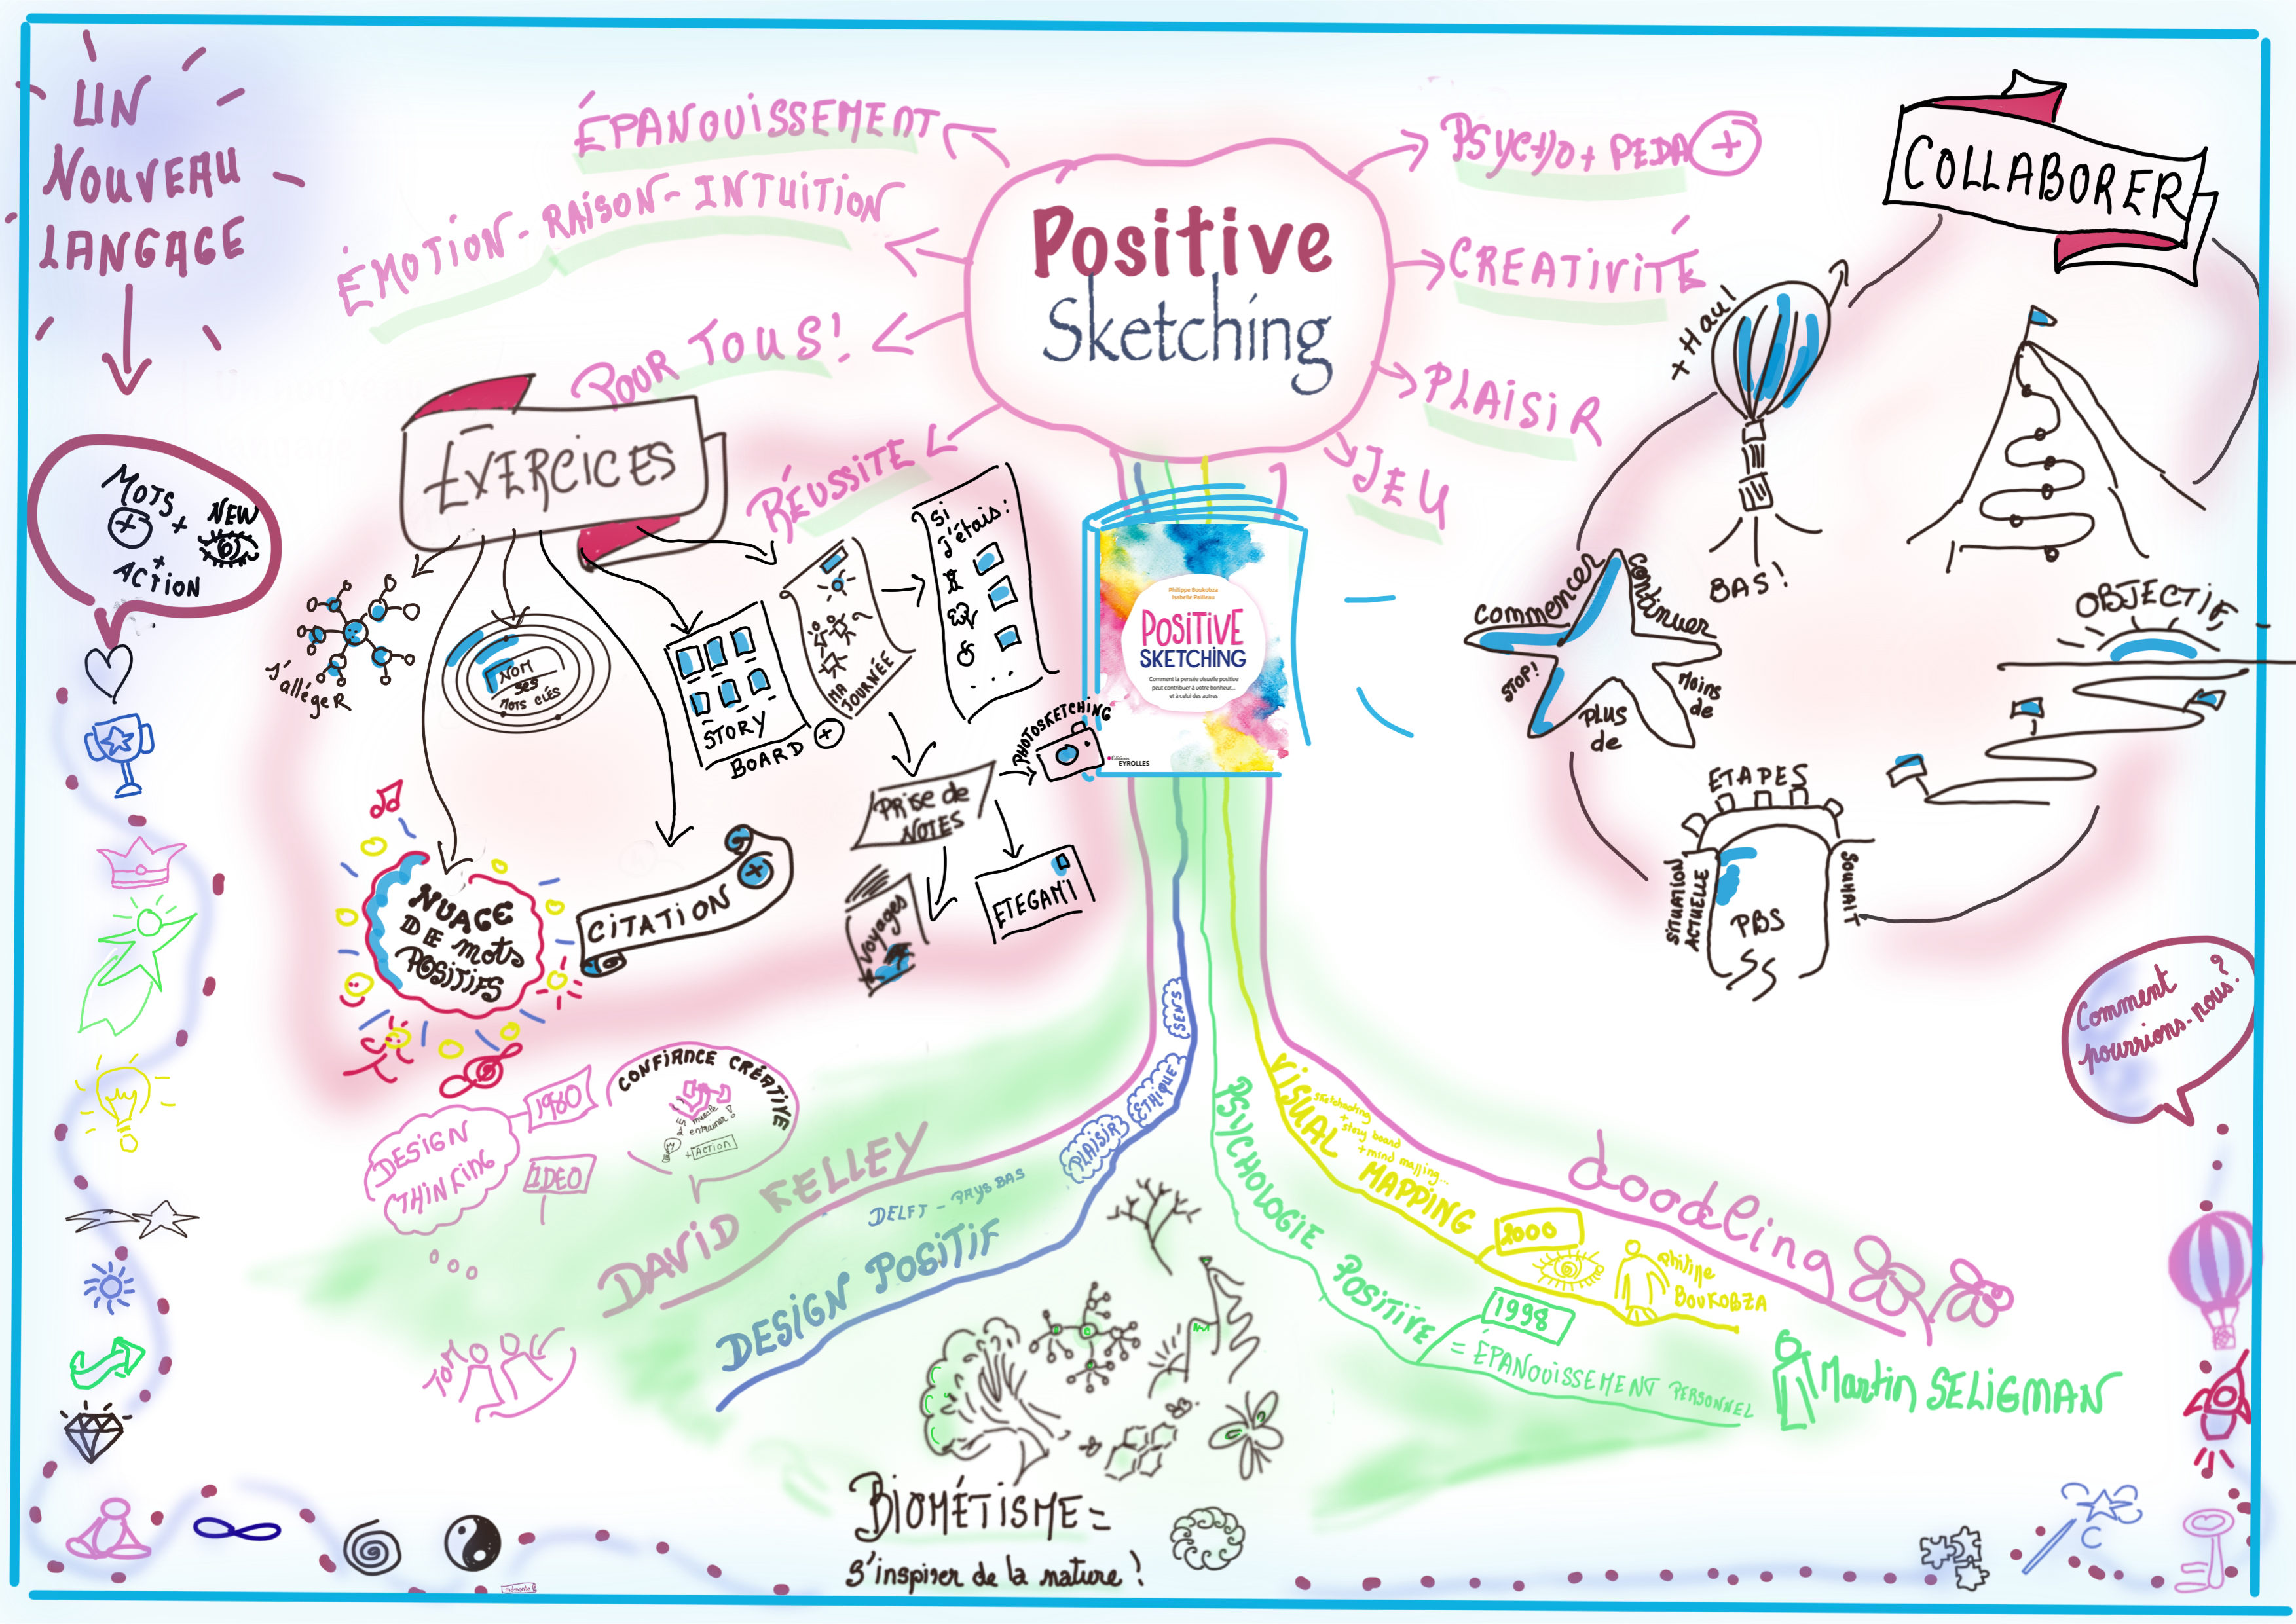 UN
NOUVEAU
LANGAGE
MOTS
+
+
NEW
+
ACTION
Positive
Sketching
ÉPANOUISSEMENT
ÉMOTION - RAISON - INTUITION
POUR TOUS!
RÉUSSITE
PSYCHO + PEDA +
CREATIVITÉ
PLAISIR
JEU
EXERCICES
S'alléger
NOM
ses
MOTS CLÉS
STORY
BOARD +
MA
JOURNÉE
Si
j'étais:
...
NUAGE
DE mots
POSITIFS
CITATION +
PRise de
NOTES
PHOTOSKETCHING
Voyages
ETEGAMI
Philippe Boukobza
Isabelle Pailleau
POSITIVE
SKETCHING
Comment la pensée visuelle positive
peut contribuer à votre bonheur...
et à celui des autres
Éditions
EYROLLES
COLLABORER
+ Haut
BAS!
commencer
continuer
STOP!
PLUS
de
Moins
de
OBJECTIF
ETAPES
SITUATION
ACTUELLE
PBS
SOUHAIT
Comment
pourrions-nous?
DESIGN
THINKING
1980
IDEO
CONFIANCE CRÉATIVE
un muscle
à entrainer!
+ ACTION
DAVID KELLEY
TOM
SENS
ÉTHIQUE
PLAISIR
DELFT - PAYS BAS
DESIGN POSITIF
PSYCHOLOGIE POSITIVE
1998
= ÉPANOUISSEMENT PERSONNEL
Martin SELIGMAN
VISUAL MAPPING
sketchnoting
+
story board
+ mind mapping...
2000
Philippe
BOUKOBZA
doodling
BIOMÉTISME =
s'inspirer de la nature!